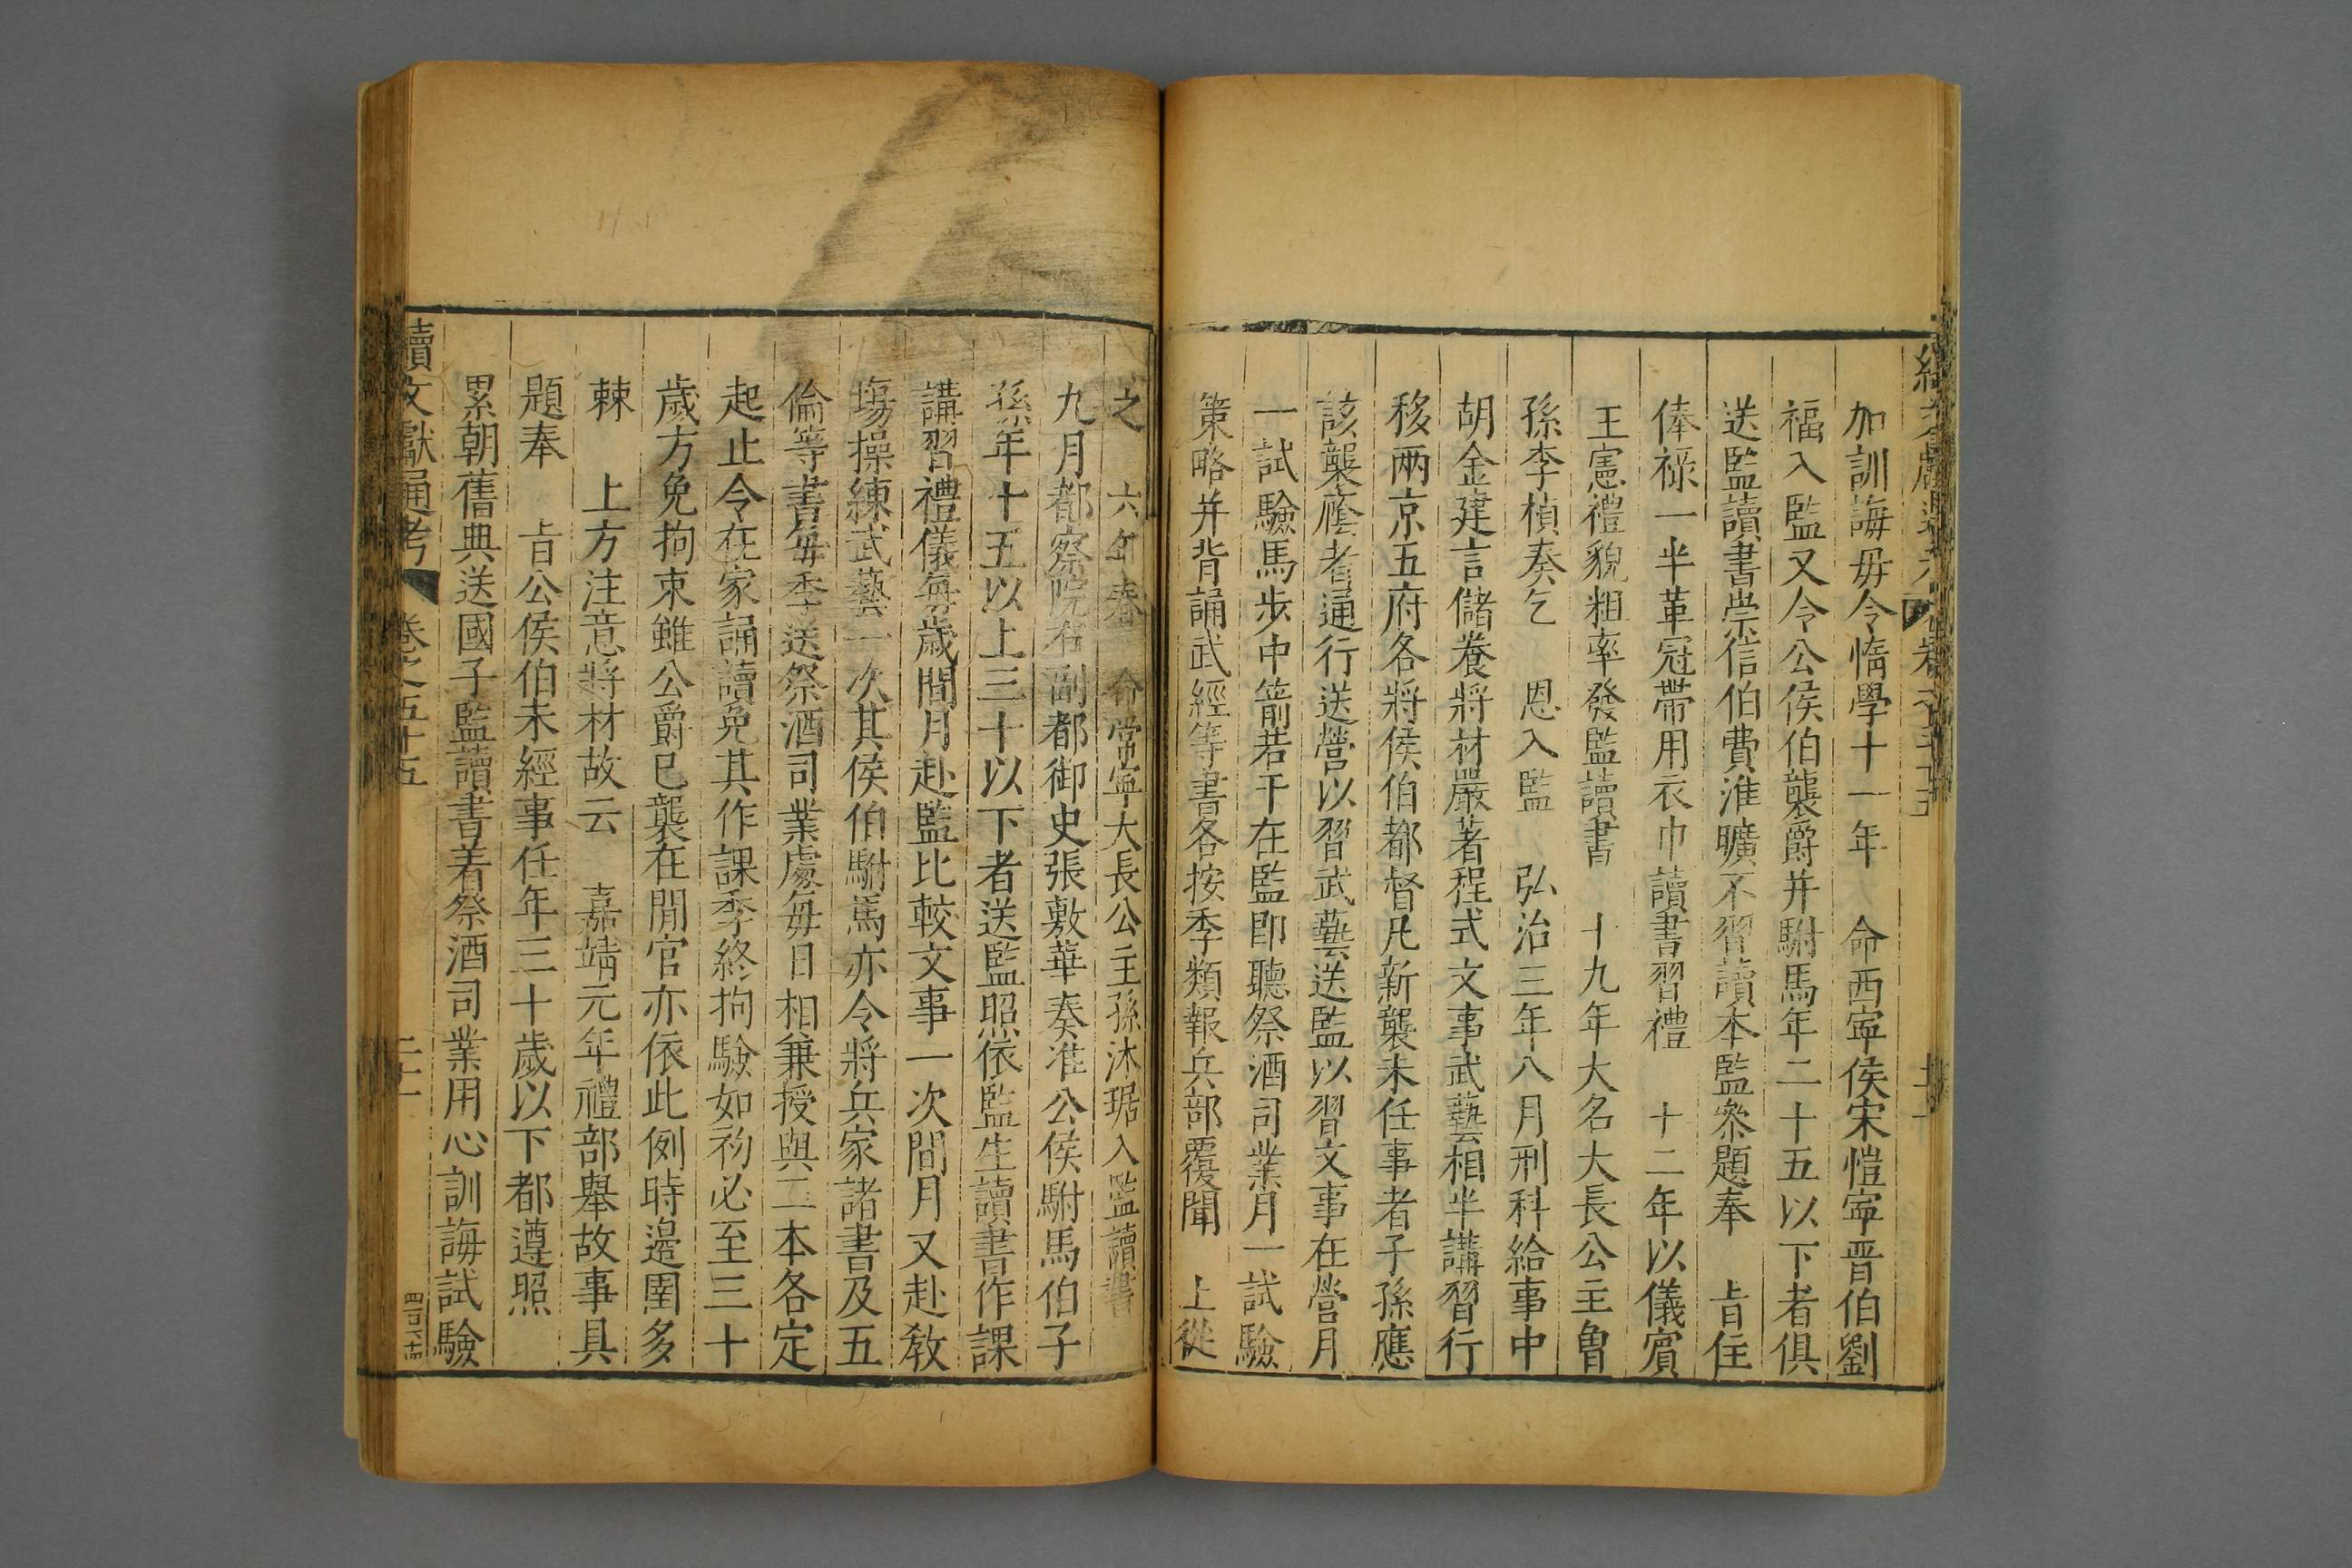 加訓誨毋令惰學十一年　命西寧侯宋愷寧晋伯劉
福入監又令公侯伯襲爵并駙馬年二十五以下者俱
送監讀書崇信伯費淮曠不習讀本監叅題奉　旨住
俸禄一半革冠帶用衣巾讀書習禮　十二年以儀賓
王憲禮貌粗率發監讀書　十九年大名大長公主曾
孫李楨奏乞　恩入監　弘治三年八月刑科給事中
胡金建言儲養將材嚴著程式文事武藝相半講習行
移兩京五府各將侯伯都督凡新襲未任事者子孫應
該襲廕者通行送營以習武藝送監以習文事在營月
一試驗馬步中箭若干在監即聽祭酒司業月一試驗
策略并背誦武經等書各按季類報兵部覆聞　上從
之　六年春　命常寧大長公主孫沐琚入監讀書
九月都察院右副都御史張敷華奏准公侯駙馬伯子
孫年十五以上三十以下者送監照依監生讀書作課
講習禮儀每歲間月赴監比較文事一次間月又赴教
塲操練武藝一次其侯伯駙馬亦令將兵家諸書及五
倫等書每季送祭酒司業處每日相兼授與二本各定
起止令在家誦讀免其作課季終拘驗如初必至三十
歲方免拘束雖公爵已襲在閒官亦依此例時邉圉多
棘　上方注意將材故云　嘉靖元年禮部舉故事具
題奉　旨公侯伯未經事任年三十歲以下都遵照
累朝舊典送國子監讀書着祭酒司業用心訓誨試驗
續文獻通考　卷之五十五　二十一　四百六十四